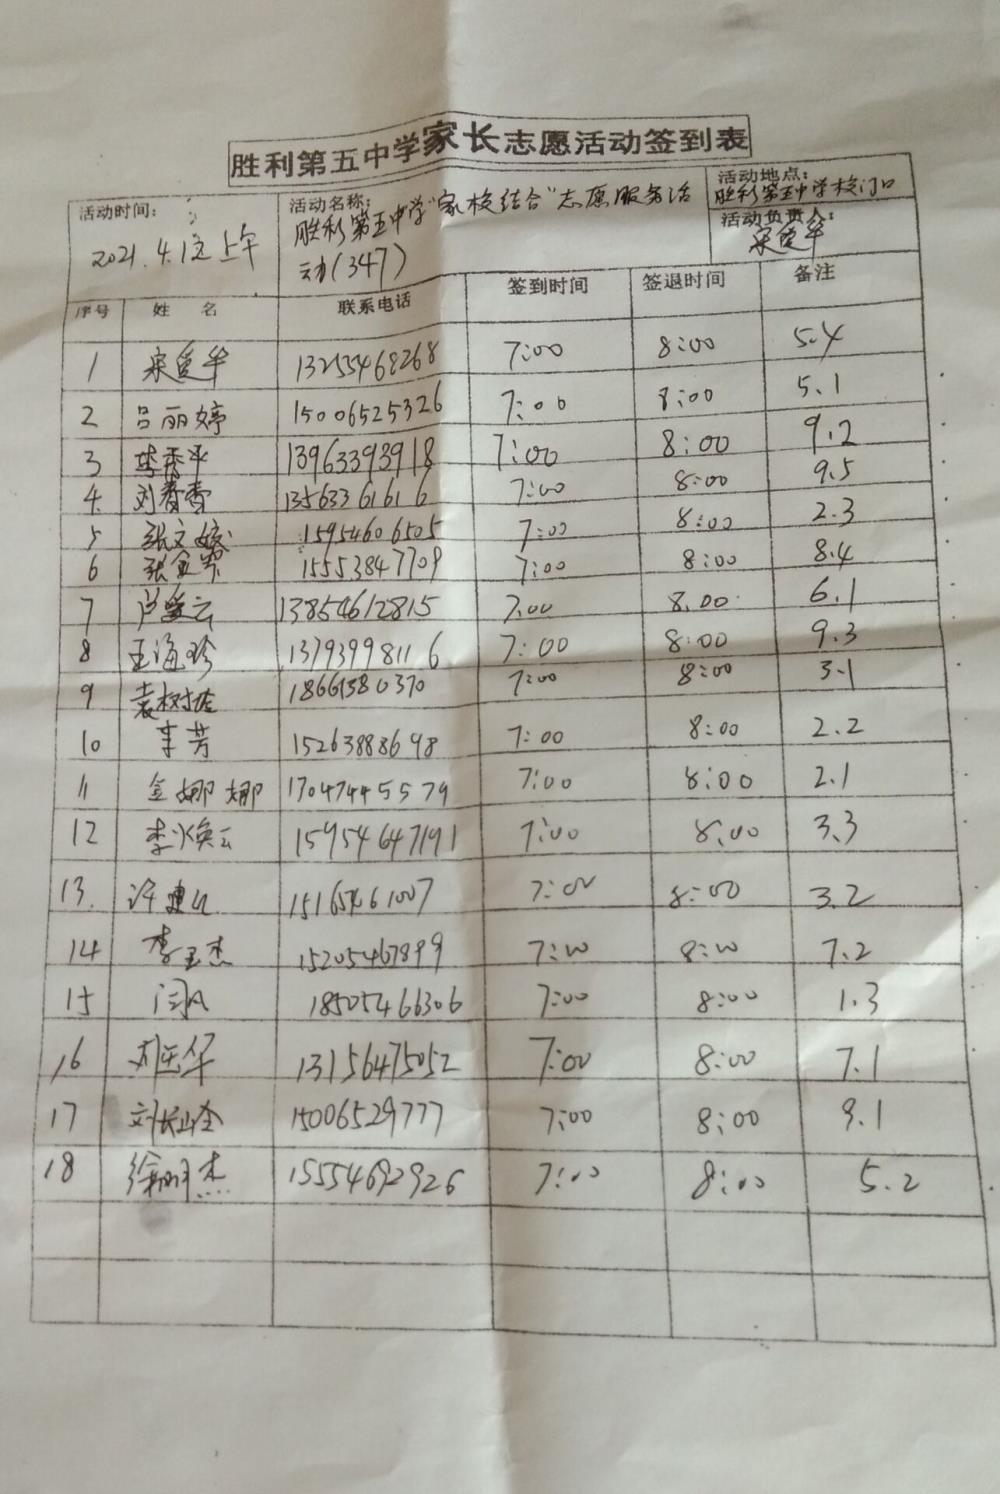 胜利第五中学家长志愿活动签到表
活动时间: 2021.4.12 上午
活动名称: 胜利第五中学“家校结合”志愿服务活动(347)
活动地点: 胜利第五中学校门口
活动负责人: 宋爱华
序号 姓 名 联系电话 签到时间 签退时间 备注
1 宋爱华 13255468268 7:00 8:00 5.4
2 吕丽婷 15006525326 7:00 8:00 5.1
3 李秀平 13963393918 7:00 8:00 9.2
4. 刘春香 13563361616 7:00 8:00 9.5
5 张文嫔 15954606505 7:00 8:00 2.3
6 张金翠 15553847709 7:00 8:00 8.4
7 卢爱云 13854612815 7:00 8.00 6.1
8 王海珍 13793998116 7:00 8:00 9.3
9 袁树 18661380370 7:00 8:00 3.1
10 李芳 15263888698 7:00 8:00 2.2
11 金娜娜 17047445579 7:00 8:00 2.1
12 李焕云 15954647191 7:00 8.00 3.3
13. 许建 15165461007 7:00 8:00 3.2
14 李玉杰 15205467899 7:00 8:00 7.2
15 闫风 18505466306 7:00 8:00 1.3
16 刘玉华 13156475052 7:00 8:00 7.1
17 刘长山全 15006529777 7:00 8:00 9.1
18 徐明杰 15554692926 7:00 8:00 5.2